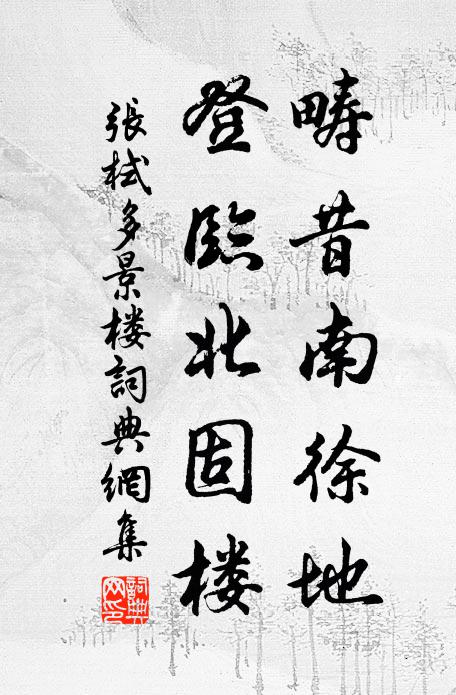 疇昔南徐地
登臨北固楼
張栻多景楼詞典網集
詞典网印